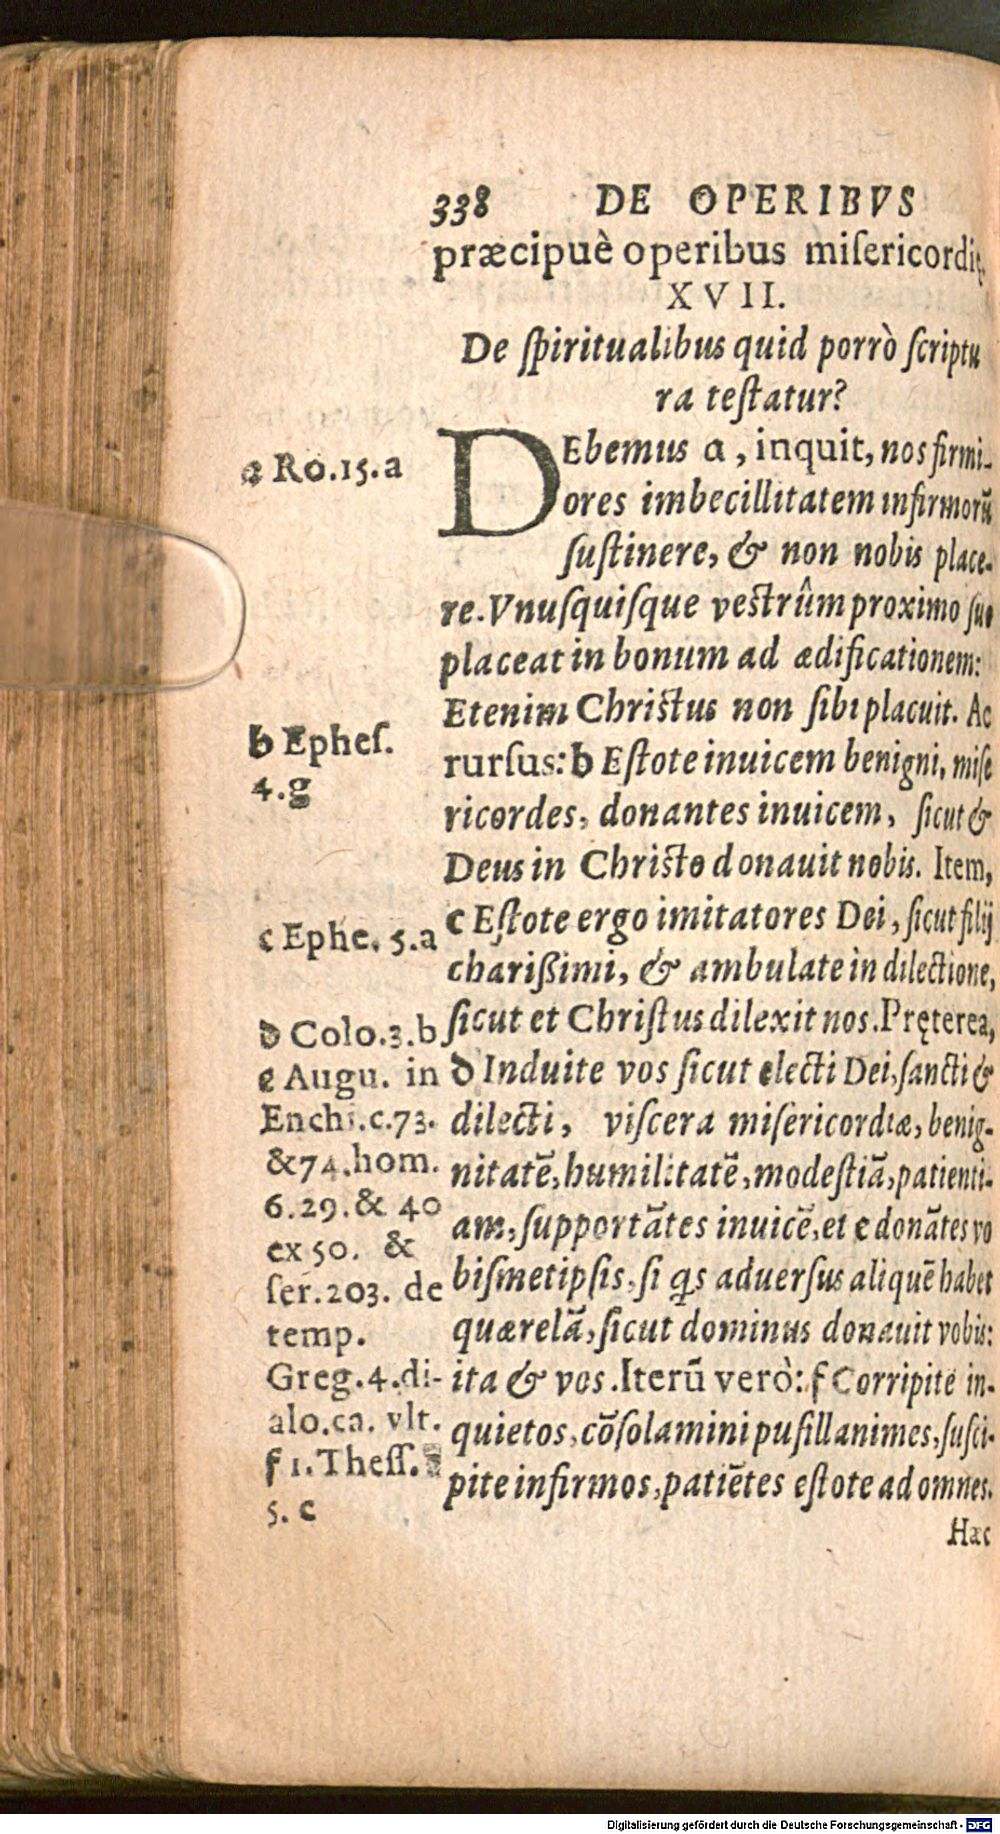 338 DE OPERIBVS
præcipuè operibus miſericordię.
XVII.
De ſpiritualibus quid porrò ſcriptu
ra teſtatur?
a Ro.15.a
DEbemus a, inquit, nos firmi-
ores imbecillitatem infirmorũ
ſuſtinere, & non nobis place-
re. Vnuſquiſque veſtrûm proximo ſuo
placeat in bonum ad ædificationem:
Etenim Chriſtus non ſibi placuit. Ac
b Epheſ.
4.g
rurſus: b Eſtote inuicem benigni, miſe
ricordes, donantes inuicem, ſicut &
Deus in Chriſto donauit nobis. Item,
c Ephe. 5.a
c Eſtote ergo imitatores Dei, ſicut filij
charißimi, & ambulate in dilectione,
ſicut et Chriſtus dilexit nos. Pręterea,
d Colo.3.b
e Augu. in
Enchi.c.73.
&74.hom.
6.29.& 40
ex 50. &
ſer.203. de
temp.
Greg.4.di-
alo.ca. vlt.
f 1.Theſſ.
5. c
d Induite vos ſicut electi Dei, ſancti &
dilecti, viſcera miſericordiæ, benig-
nitatẽ, humilitatẽ, modeſtiã, patienti-
am, ſupportãtes inuicẽ, et e donãtes vo
biſmetipſis, ſi qs aduerſus aliquẽ habet
quærelã, ſicut dominus donauit vobis:
ita & vos. Iterũ verò: f Corripite in-
quietos, cõſolamini puſillanimes, ſuſci-
pite infirmos, patiẽtes eſtote ad omnes.
Hæc
Digitalisierung gefördert durch die Deutsche Forschungsgemeinschaft - DFG